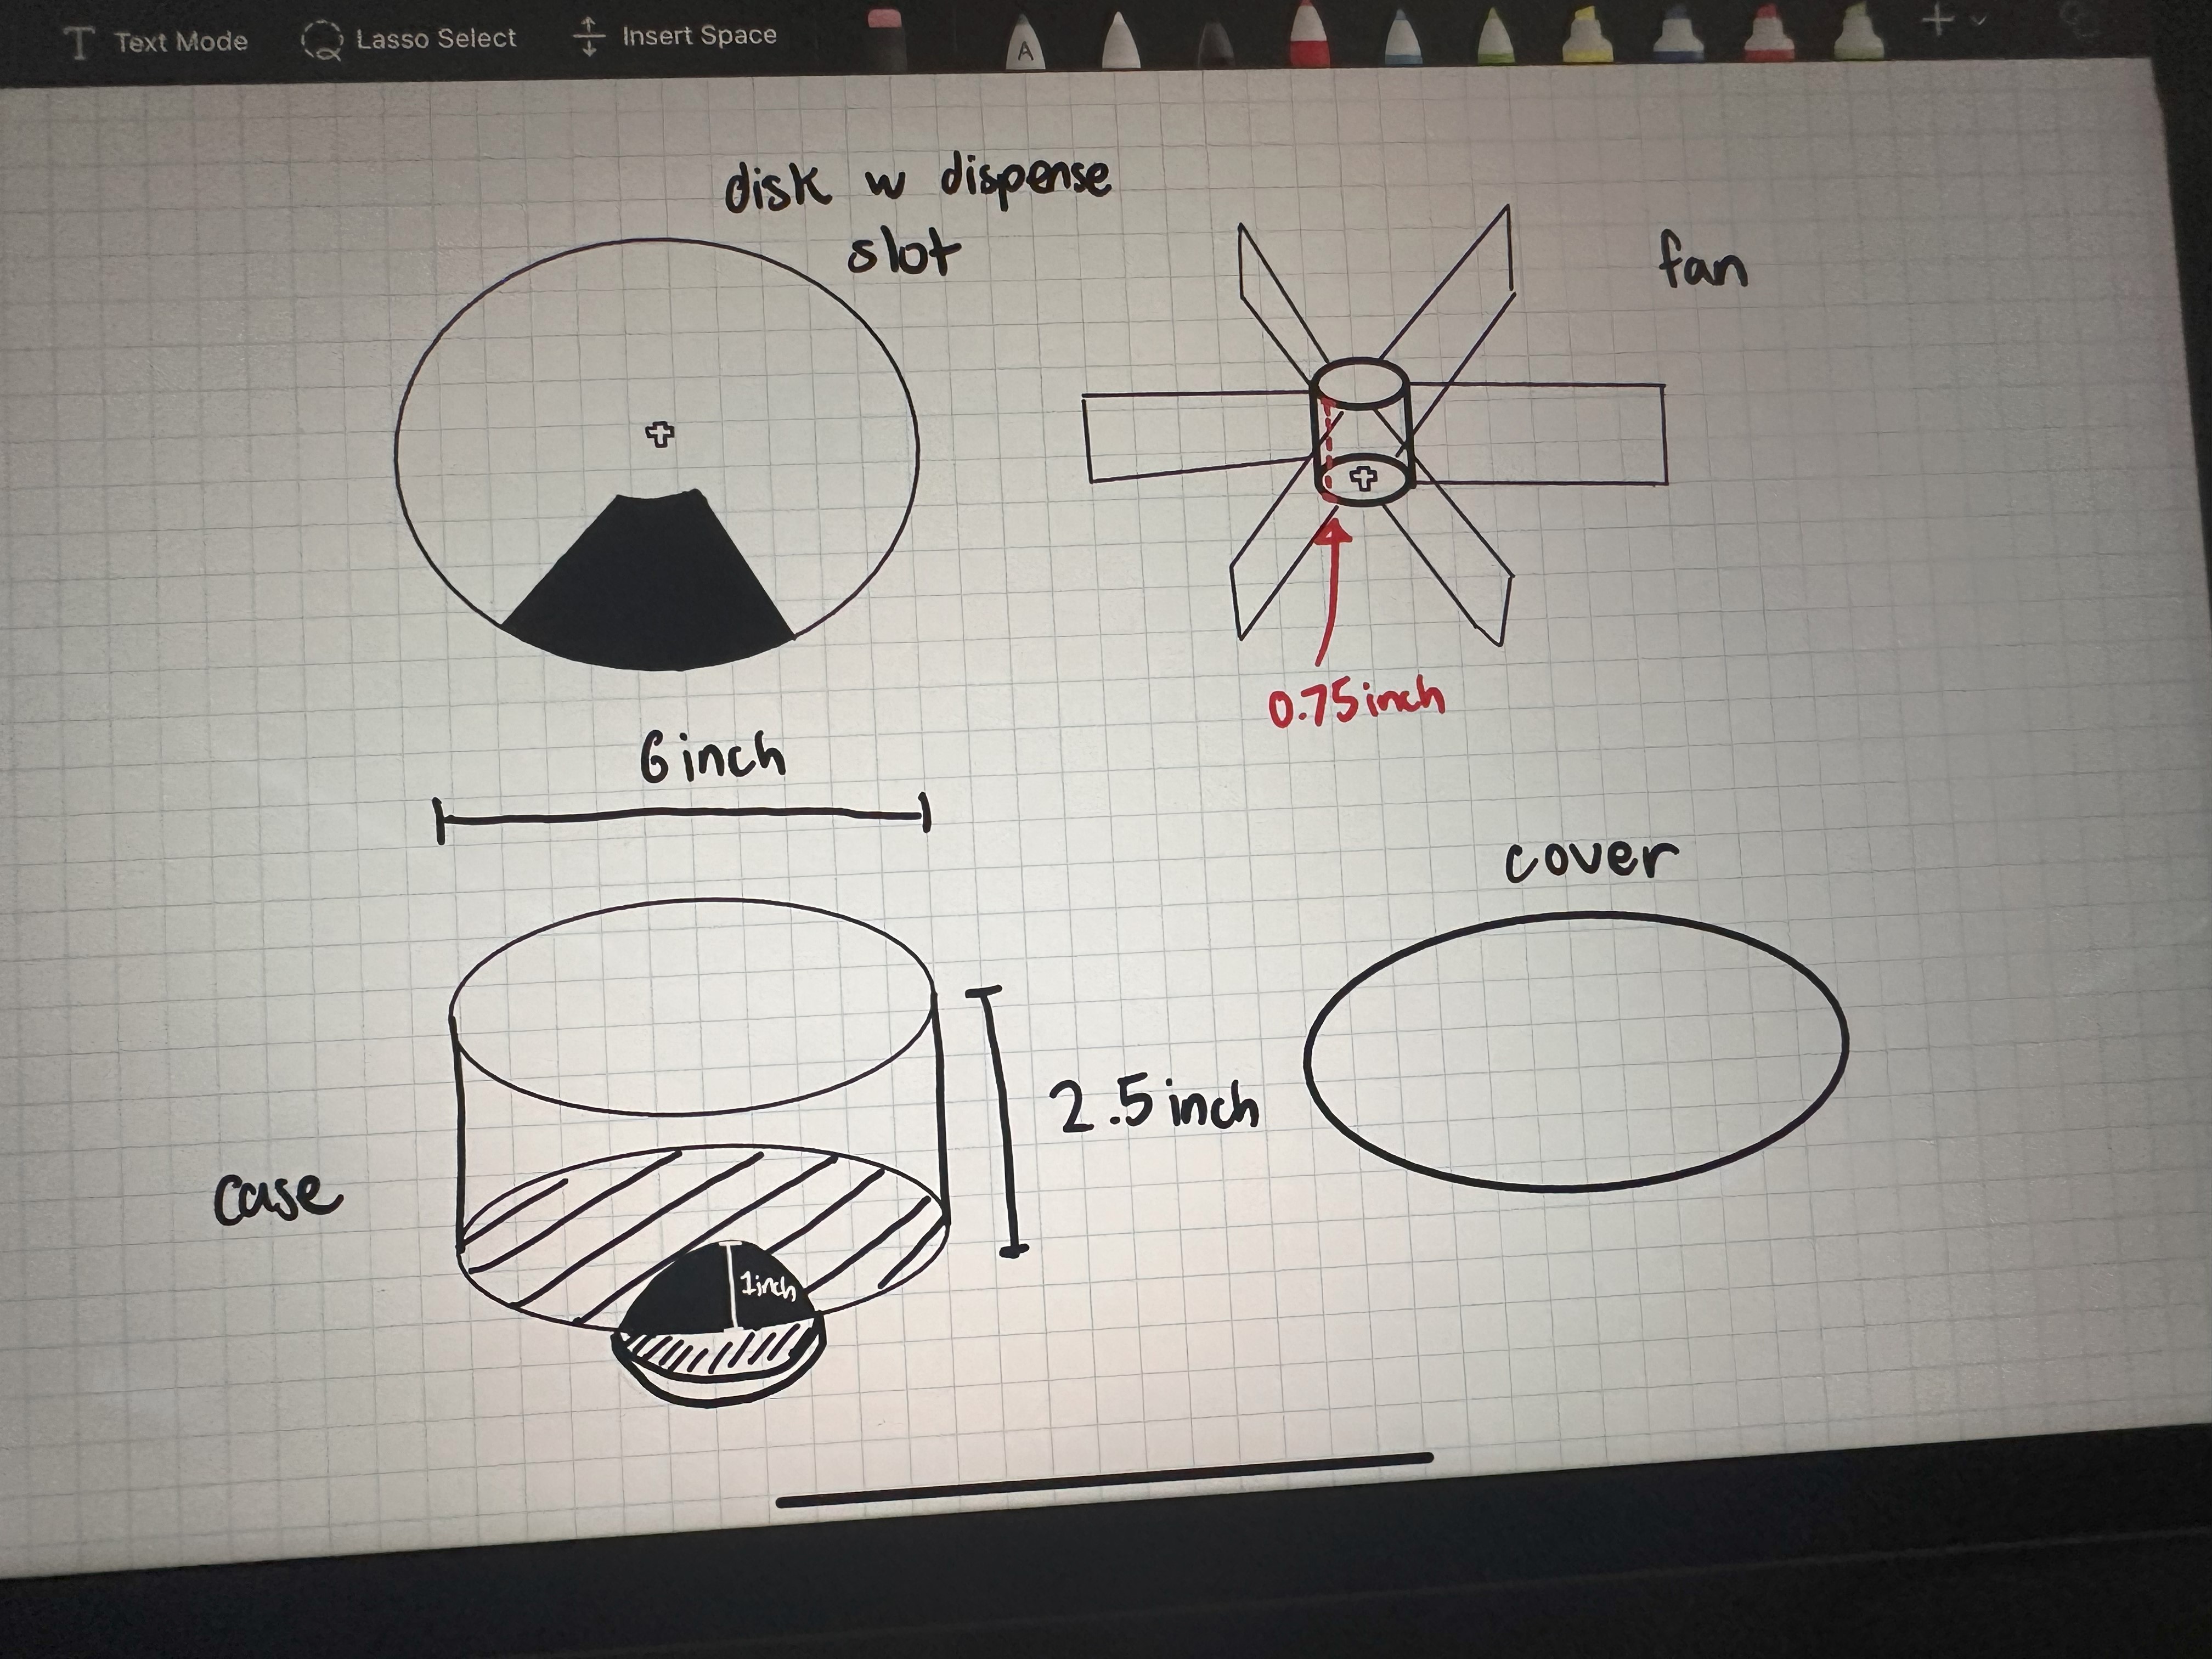 Text Mode
Lasso Select
Insert Space
A
disk w dispense
slot
fan
0.75inch
6 inch
cover
2.5 inch
case
1inch